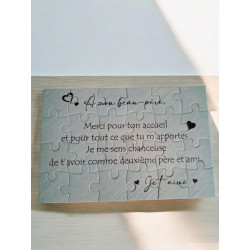 A mon beau-père,
Merci pour ton accueil
et pour tout ce que tu m'apportes
Je me sens chanceuse
de t'avoir comme deuxième père et ami
Je t'aime